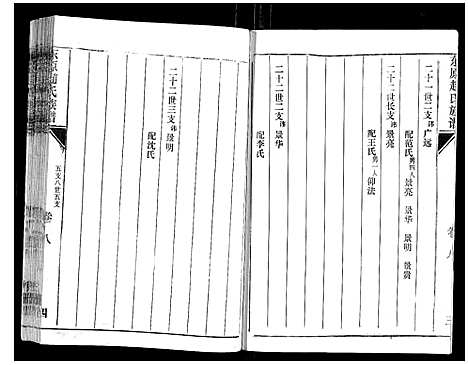 东原赵氏族谱
卷八
二十一世二支 讳 广远
配范氏 男四人 景亮 景华 景明 景贵
二十二世长支 讳 景亮
配王氏 男一人 仰法
二十二世二支 讳 景华
配李氏
二十二世三支 讳 景明
配沈氏
五支八世五支
卷八
四